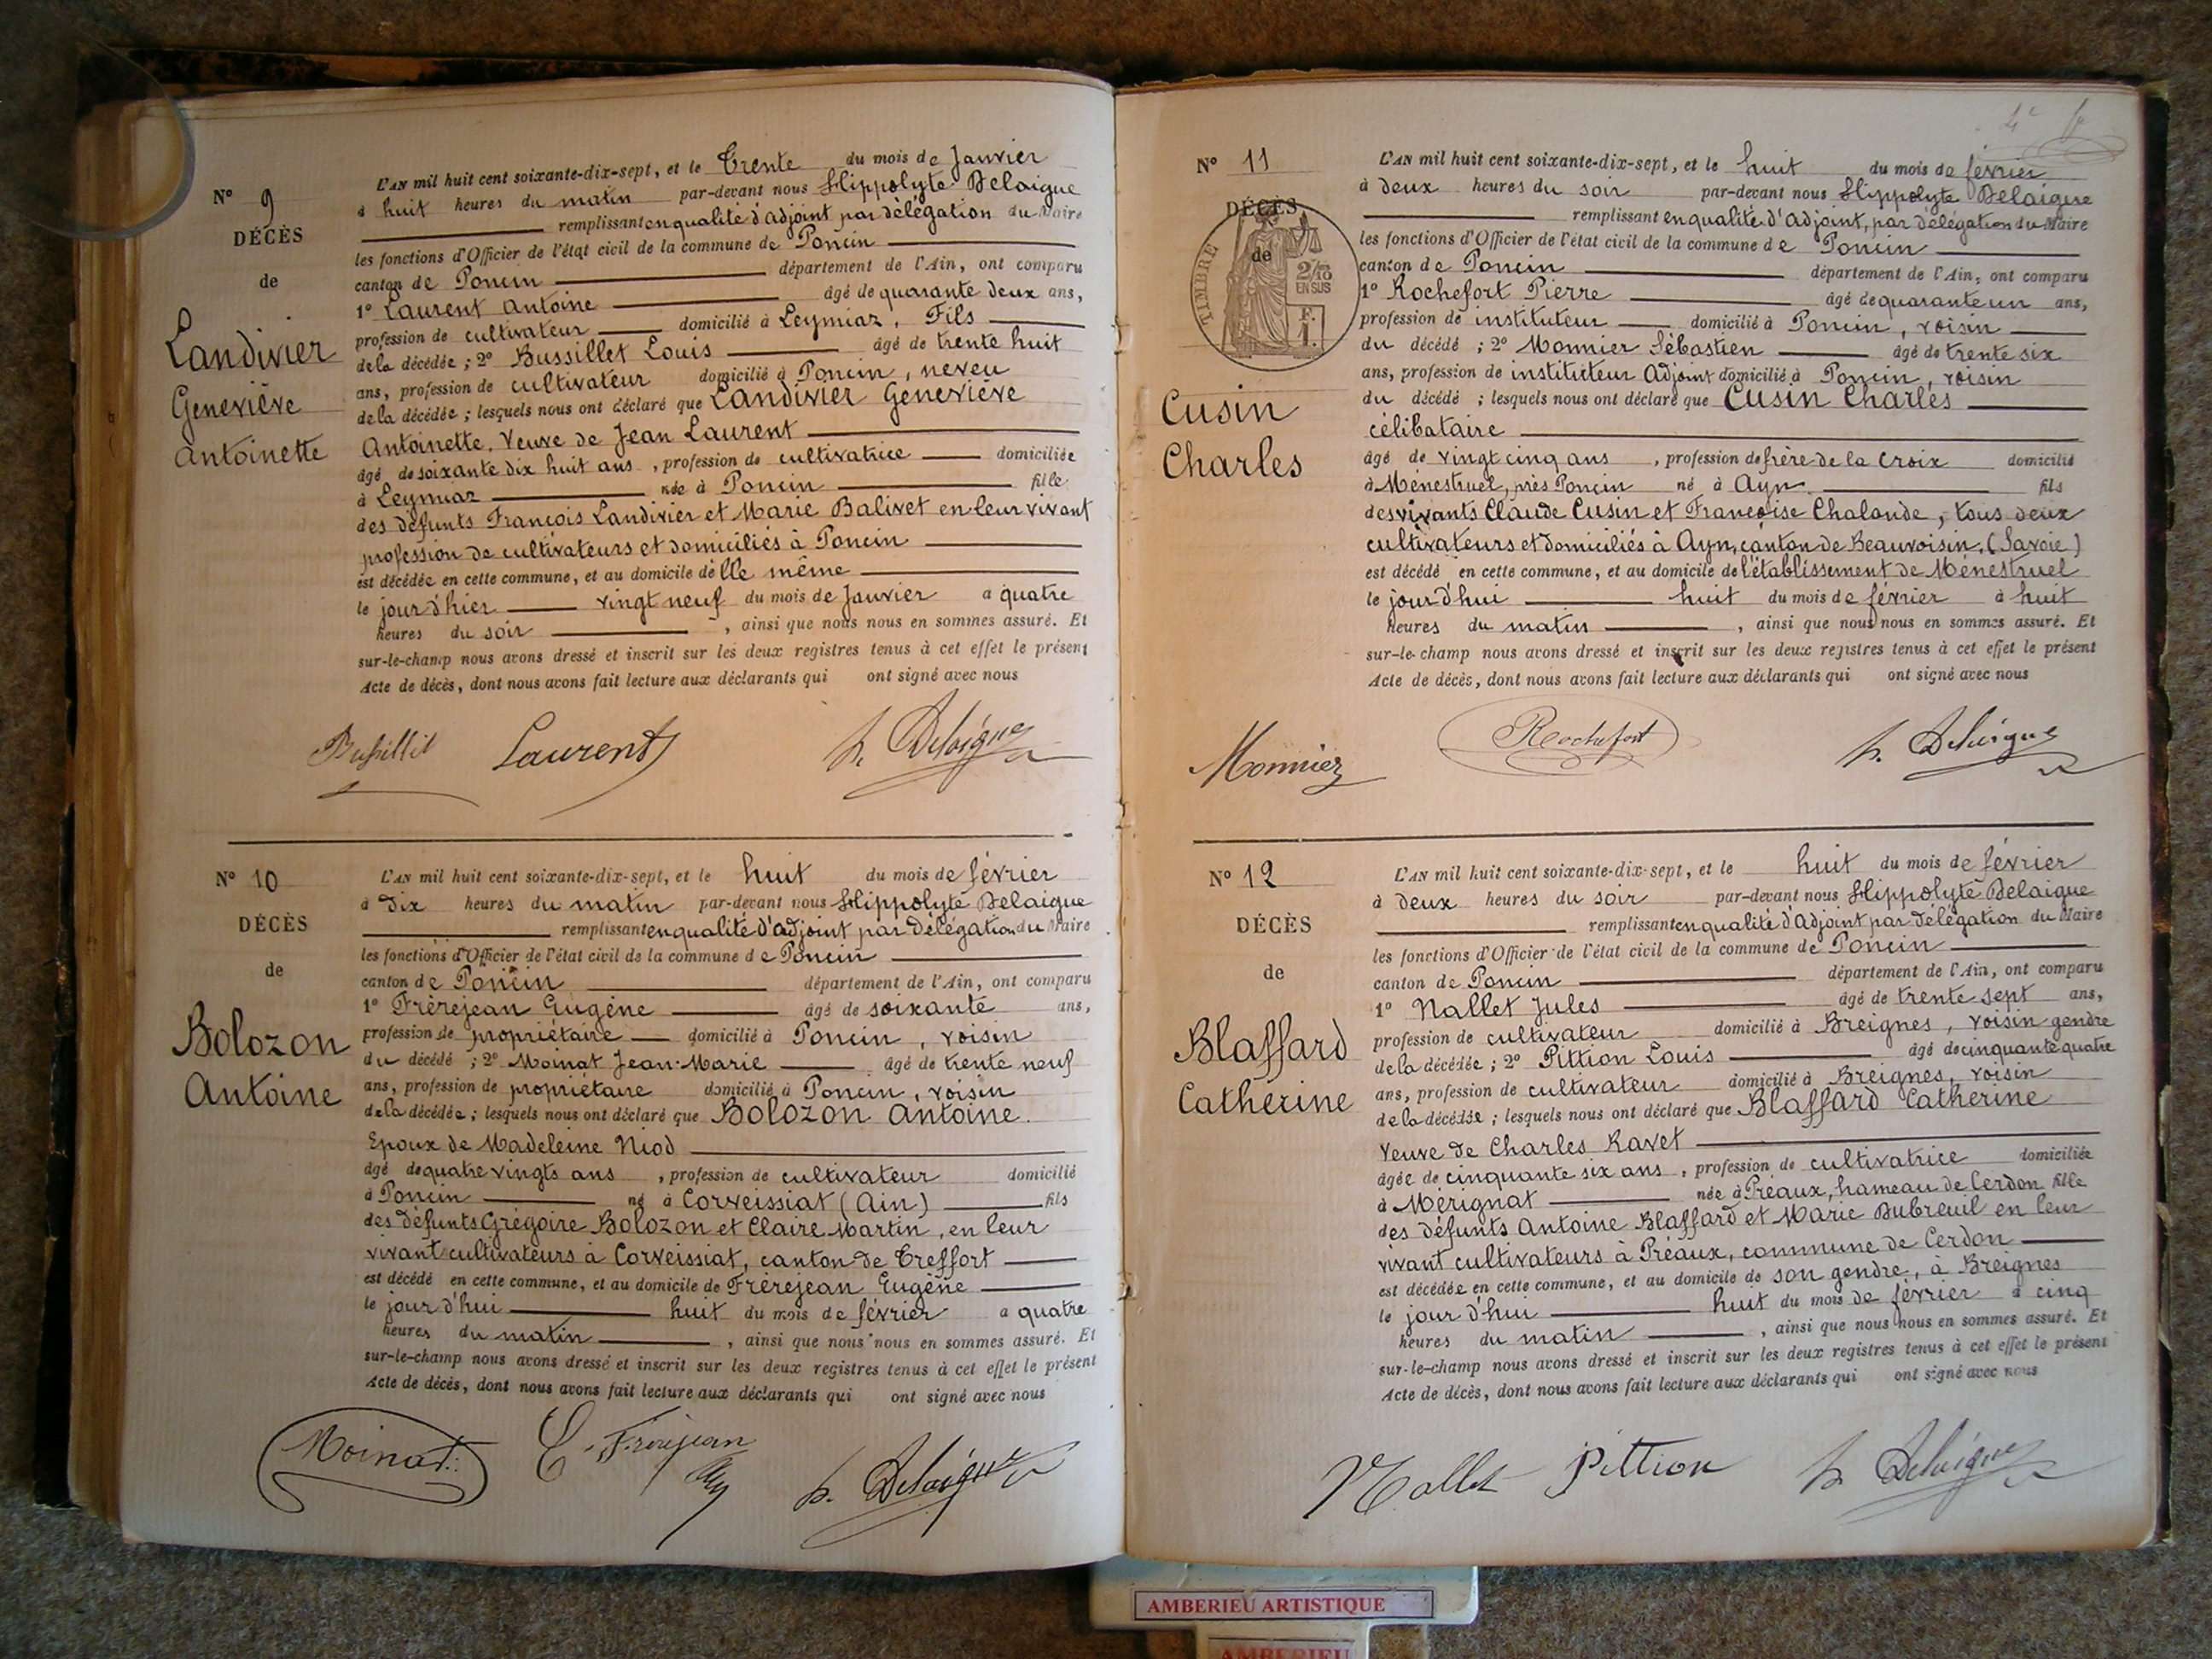 N° 9
DÉCÈS
de
Landivier
Geneviève
Antoinette
L'AN mil huit cent soixante-dix-sept, et le Trente du mois de Janvier
à huit heures du matin par-devant nous Hippolyte Delaigue
remplissant en qualité d'adjoint par délégation du Maire
les fonctions d'Officier de l'état civil de la commune de Poncin
canton de Poncin département de l'Ain, ont comparu
1° Laurent Antoine âgé de quarante deux ans,
profession de cultivateur domicilié à Leymiaz, Fils
de la décédée ; 2° Bussillet Louis âgé de trente huit
ans, profession de cultivateur domicilié à Poncin, neveu
de la décédée ; lesquels nous ont déclaré que Landivier Geneviève
Antoinette, Veuve de Jean Laurent
âgé de soixante dix huit ans, profession de cultivatrice domiciliée
à Leymiaz née à Poncin fille
des défunts François Landivier et Marie Balivet en leur vivant
profession de cultivateurs et domiciliés à Poncin
est décédée en cette commune, et au domicile de lle même
le jour d'hier vingt neuf du mois de Janvier a quatre
heures du soir , ainsi que nous nous en sommes assuré. Et
sur-le-champ nous avons dressé et inscrit sur les deux registres tenus à cet effet le présent
Acte de décès, dont nous avons fait lecture aux déclarants qui ont signé avec nous
Bussillet Laurent h. Delaigue
N° 10
DÉCÈS
de
Bolozon
Antoine
L'AN mil huit cent soixante-dix-sept, et le huit du mois de février
à dix heures du matin par-devant nous Hippolyte Delaigue
remplissant en qualité d'adjoint par Délégation du Maire
les fonctions d'Officier de l'état civil de la commune de Poncin
canton de Poncin département de l'Ain, ont comparu
1° Frèrejean Eugène âgé de soixante ans,
profession de propriétaire domicilié à Poncin, voisin
du décédé ; 2° Moinat Jean-Marie âgé de trente neuf
ans, profession de propriétaire domicilié à Poncin, voisin
de la décédée ; lesquels nous ont déclaré que Bolozon Antoine.
Epoux de Madeleine Niod
âgé de quatre vingts ans , profession de cultivateur domicilié
à Poncin né à Corveissiat (Ain) fils
des défunts Grégoire Bolozon et Claire Martin, en leur
vivant cultivateurs à Corveissiat, canton de Treffort
est décédé en cette commune, et au domicile de Frèrejean Eugène
le jour d'hui huit du mois de février a quatre
heures du matin , ainsi que nous nous en sommes assuré. Et
sur-le-champ nous avons dressé et inscrit sur les deux registres tenus à cet effet le présent
Acte de décès, dont nous avons fait lecture aux déclarants qui ont signé avec nous
Moinat E. Frèrejean h. Delaigue
N° 11
DÉCÈS
de
TIMBRE
2/10
EN SUS
F.
1.
Cusin
Charles
L'AN mil huit cent soixante-dix-sept, et le huit du mois de février
à deux heures du soir par-devant nous Hippolyte Delaigue
remplissant en qualité d'Adjoint, par délégation du Maire
les fonctions d'Officier de l'état civil de la commune de Poncin
canton de Poncin département de l'Ain, ont comparu
1° Rochefort Pierre âgé de quarante un ans,
profession de instituteur domicilié à Poncin, voisin
du décédé ; 2° Monnier Sébastien âgé de trente six
ans, profession de instituteur Adjoint domicilié à Poncin, voisin
du décédé ; lesquels nous ont déclaré que Cusin Charles
célibataire
âgé de vingt cinq ans , profession de frère de la Croix domicilié
à Ménestruel, près Poncin né à Ayn fils
des vivants Claude Cusin et Françoise Chalande, tous deux
cultivateurs et domiciliés à Ayn, canton de Beauvoisin, (Savoie)
est décédé en cette commune, et au domicile de l'établissement de Ménestruel
le jour d'hui huit du mois de février à huit
heures du matin , ainsi que nous nous en sommes assuré. Et
sur-le-champ nous avons dressé et inscrit sur les deux registres tenus à cet effet le présent
Acte de décès, dont nous avons fait lecture aux déclarants qui ont signé avec nous
Monnier Rochefort h. Delaigue
N° 12
DÉCÈS
de
Blaffard
Catherine
L'AN mil huit cent soixante-dix-sept, et le huit du mois de février
à deux heures du soir par-devant nous Hippolyte Delaigue
remplissant en qualité d'Adjoint par délégation du Maire
les fonctions d'Officier de l'état civil de la commune de Poncin
canton de Poncin département de l'Ain, ont comparu
1° Nallet Jules âgé de trente sept ans,
profession de cultivateur domicilié à Breignes, voisin gendre
de la décédée ; 2° Pittion Louis âgé de cinquante quatre
ans, profession de cultivateur domicilié à Breignes, voisin
de la décédée ; lesquels nous ont déclaré que Blaffard Catherine
Veuve de Charles Ravet
âgée de cinquante six ans , profession de cultivatrice domiciliée
à Mérignat née à Préaux, hameau de Cerdon fille
des défunts Antoine Blaffard et Marie Dubreuil en leur
vivant cultivateurs à Préaux, commune de Cerdon
est décédée en cette commune, et au domicile de son gendre, à Breignes
le jour d'hui huit du mois de février à cinq
heures du matin , ainsi que nous nous en sommes assuré. Et
sur-le-champ nous avons dressé et inscrit sur les deux registres tenus à cet effet le présent
Acte de décès, dont nous avons fait lecture aux déclarants qui ont signé avec nous
Nallet Pittion h. Delaigue
AMBERIEU ARTISTIQUE
AMBERIEU